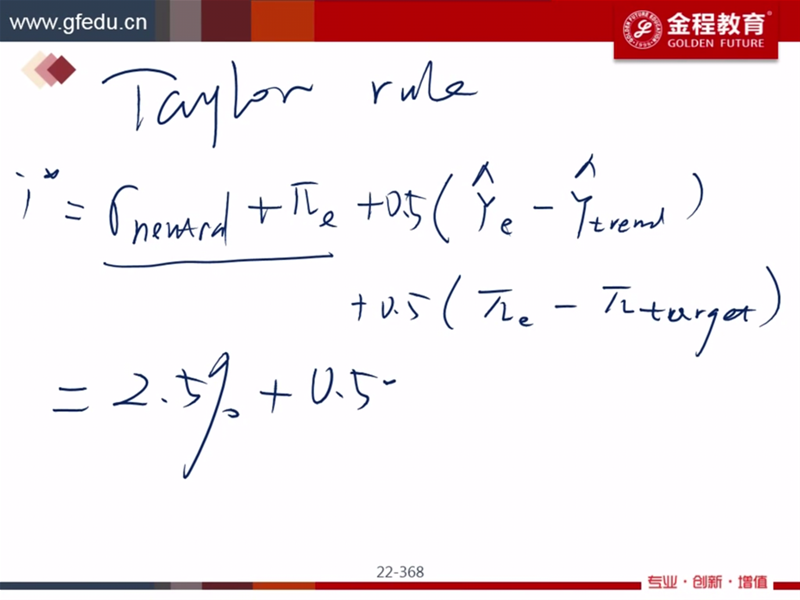 www.gfedu.cn
金程教育
GOLDEN FUTURE
Taylor rule
i* = r_neutral + π_e + 0.5 ( Ŷ_e - Ŷ_trend )
+ 0.5 ( π_e - π_target )
= 2.5% + 0.5
22-368
专业·创新·增值